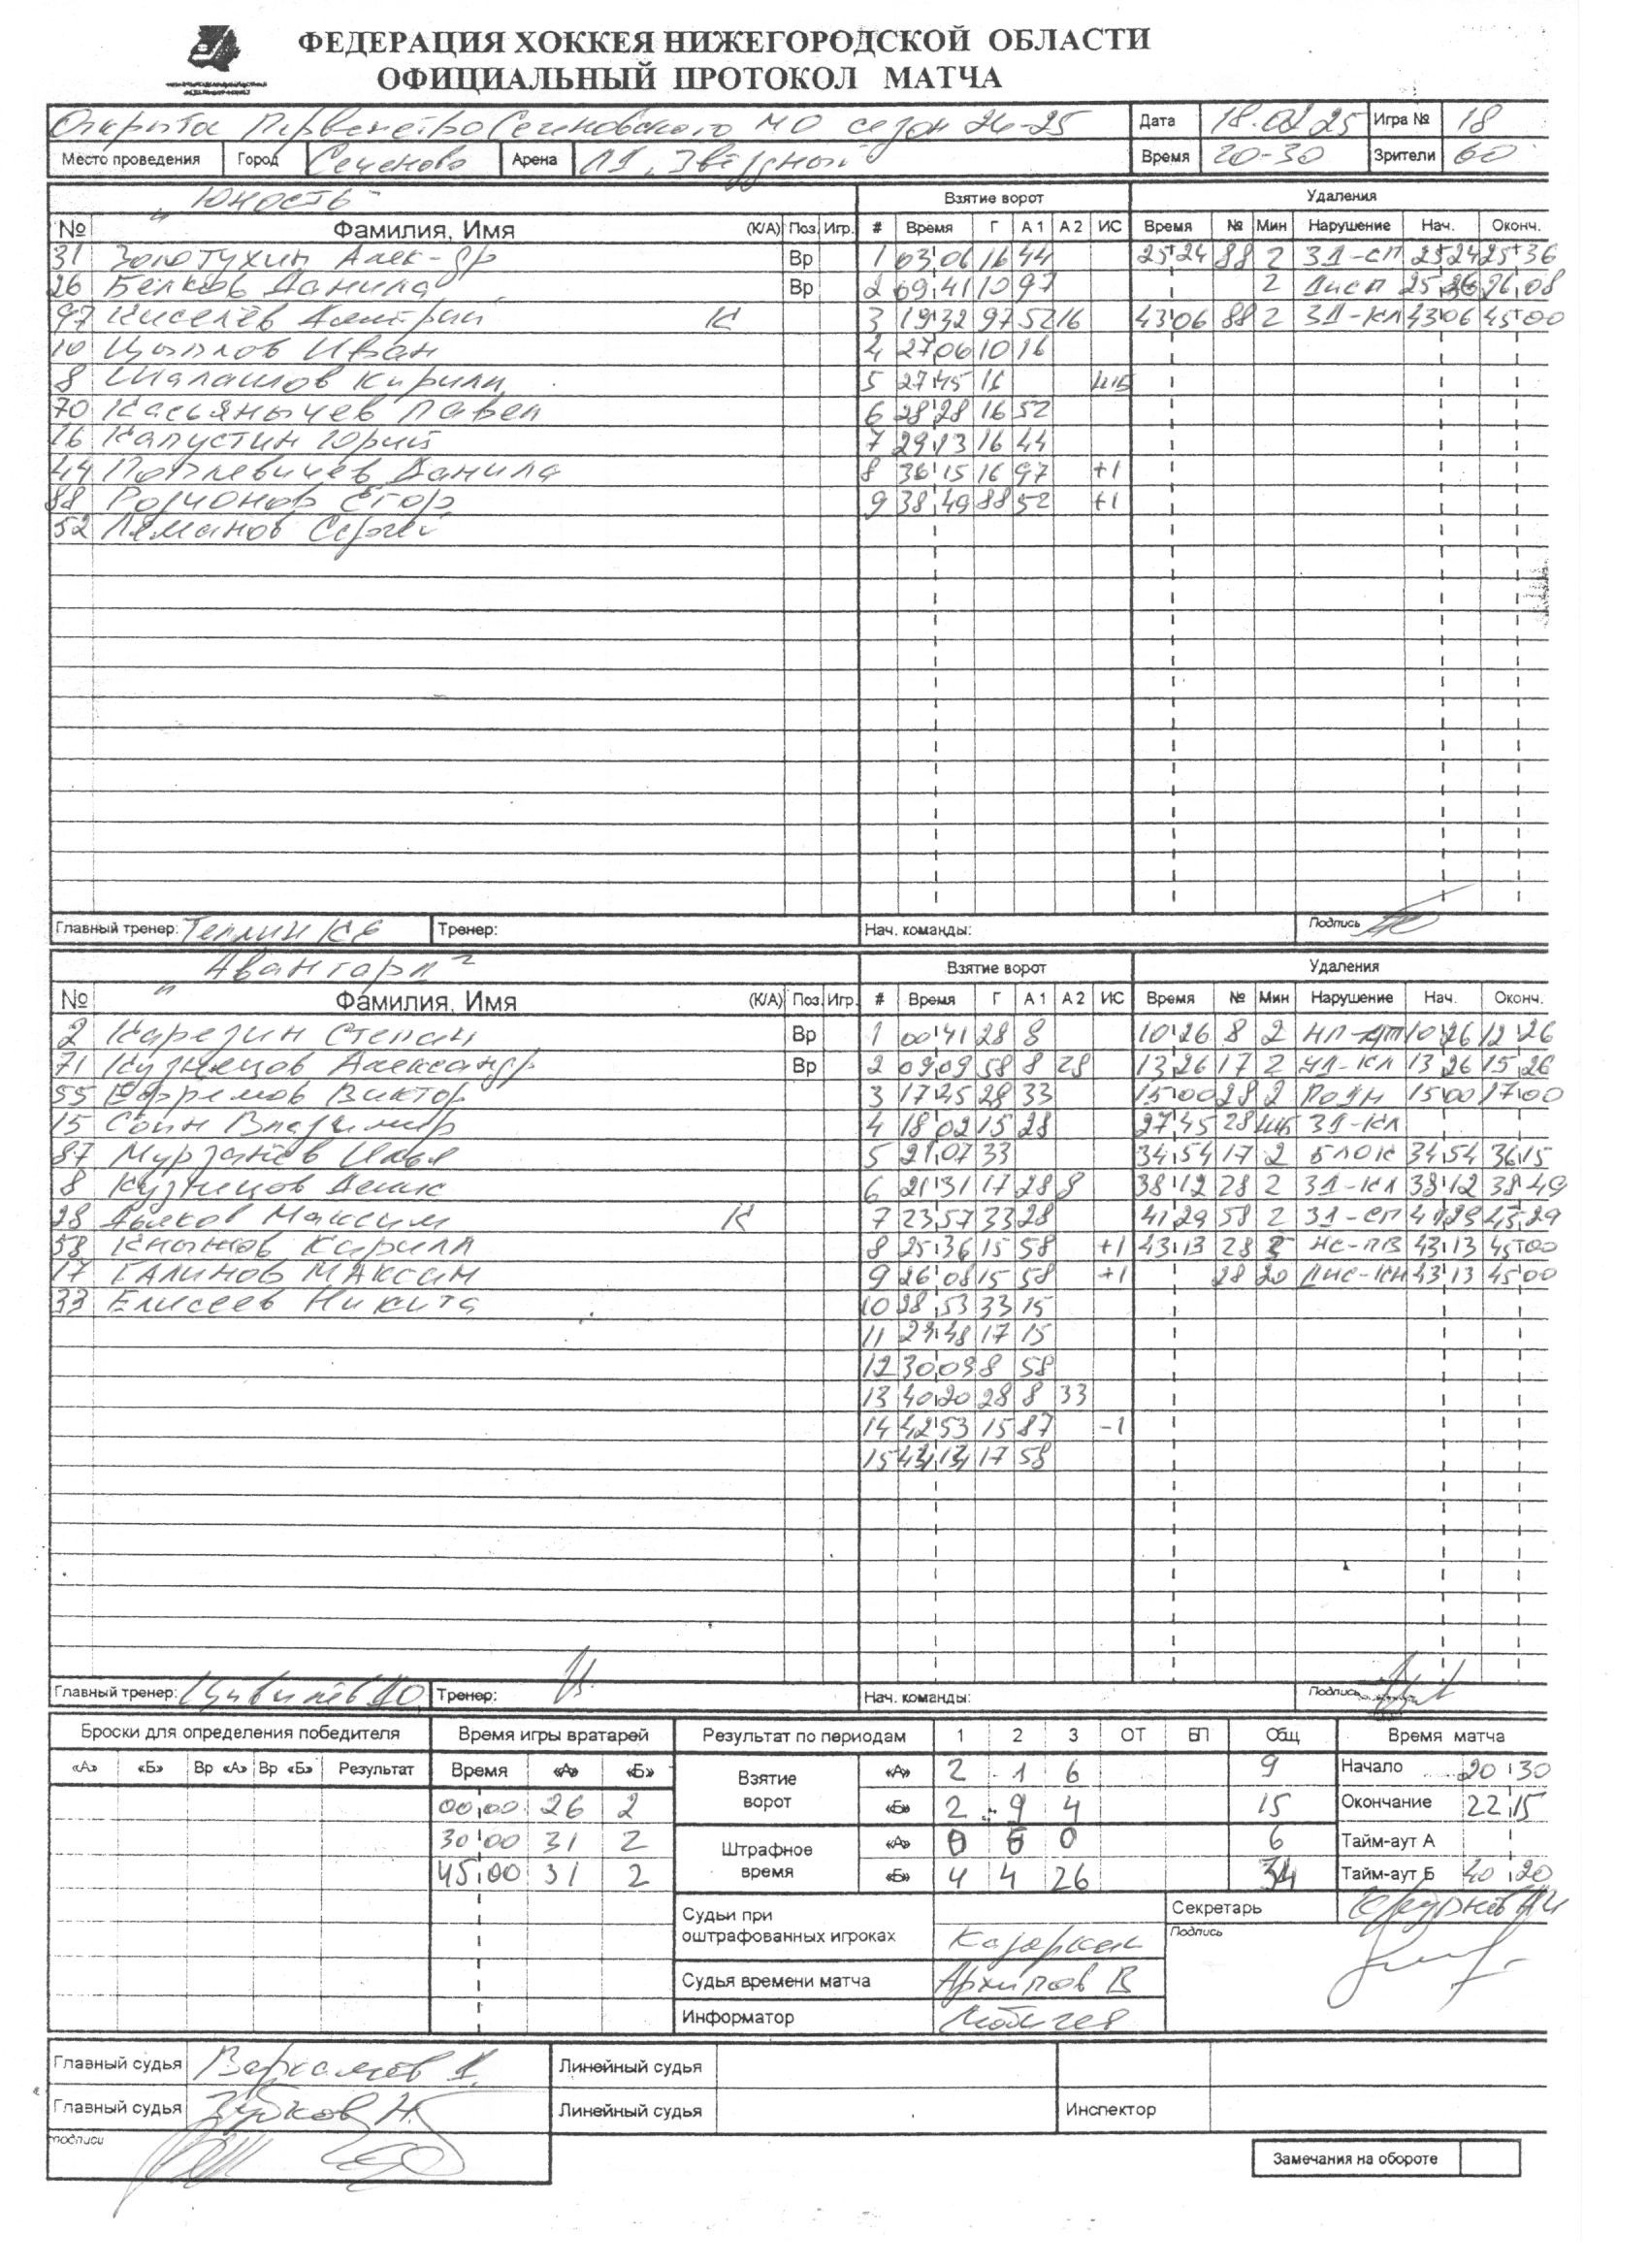 ФЕДЕРАЦИЯ ХОККЕЯ НИЖЕГОРОДСКОЙ ОБЛАСТИ
ОФИЦИАЛЬНЫЙ ПРОТОКОЛ МАТЧА
Первенство Сеченовского МО сезон 24-25 Дата 18.02.25 Игра № 18
Место проведения Город Сеченово Арена Звёздный Время 20-30 Зрители 60
"Юность" Взятие ворот Удаления
№ Фамилия, Имя (К/А) Поз Игр. # Время Г А1 А2 ИС Время № Мин Нарушение Нач. Оконч.
31 Золотухин Алек-др Вр 1 03 06 16 44 25 24 88 2 ЗД-СП 25 24 25 36
26 Белков Данила Вр 2 09 41 10 97 2 Дисп 25 36 26 08
97 Киселёв Дмитрий К 3 19 32 97 52 16 43 06 88 2 ЗД-КЛ 43 06 45 00
10 Цыплов Иван 4 27 06 10 16
8 Шалашов Кирилл 5 27 45 16 ШБ
70 Касьянычев Павел 6 28 28 16 52
16 Капустин Юрий 7 29 13 16 44
44 Данила 8 36 15 16 97 +1
88 Родионов Егор 9 38 49 88 52 +1
52 Ляманов Сергей
Главный тренер: Теплин К Е Тренер: Нач. команды: Подпись
"Авангард" Взятие ворот Удаления
№ Фамилия, Имя (К/А) Поз Игр. # Время Г А1 А2 ИС Время № Мин Нарушение Нач. Оконч.
2 Карезин Степан Вр 1 00 41 28 8 10 26 8 2 10 26 12 26
71 Кузнецов Александр Вр 2 09 09 58 8 28 13 26 17 2 УД-КЛ 13 26 15 26
55 Ефремов Виктор 3 17 45 28 33 15 00 28 2 ПОДН 15 00 17 00
15 Соин Владимир 4 18 02 15 28 27 45 28 ШБ ЗД-КЛ
87 Мурзанёв Илья 5 21 07 33 34 54 17 2 БЛОК 34 54 36 15
8 Кузнецов Денис 6 21 31 17 28 8 38 12 28 2 ЗД-КЛ 38 12 38 49
28 Дьяков Максим К 7 23 57 33 28 41 29 58 2 ЗД-СП 41 29 43 29
58 Кныжов Кирилл 8 25 36 15 58 +1 43 13 28 5 НС-ПВ 43 13 45 00
17 ГАЛИНОВ МАКСИМ 9 26 08 15 58 +1 28 20 ДИС-КН 43 13 45 00
33 Елисеев Никита 10 28 53 33 15
11 29 48 17 15
12 30 09 8 58
13 40 20 28 8 33
14 42 53 15 87 -1
15 17 58
Главный тренер: Тренер: Нач. команды: Подпись
Броски для определения победителя Время игры вратарей Результат по периодам 1 2 3 ОТ БП Общ Время матча
«А» «Б» Вр «А» Вр «Б» Результат Время «А» «Б» Взятие ворот «А» 2 1 6 9 Начало 20 30
00 00 26 2 «Б» 2 9 4 15 Окончание 22 15
30 00 31 2 Штрафное время «А» 0 6 0 6 Тайм-аут А
45 00 31 2 «Б» 4 4 26 34 Тайм-аут Б 40 20
Судьи при оштрафованных игроках Секретарь
Подпись
Судья времени матча Архипов В
Информатор
Главный судья Варламов Линейный судья
Главный судья Зубков Н. Линейный судья Инспектор
подписи
Замечания на обороте